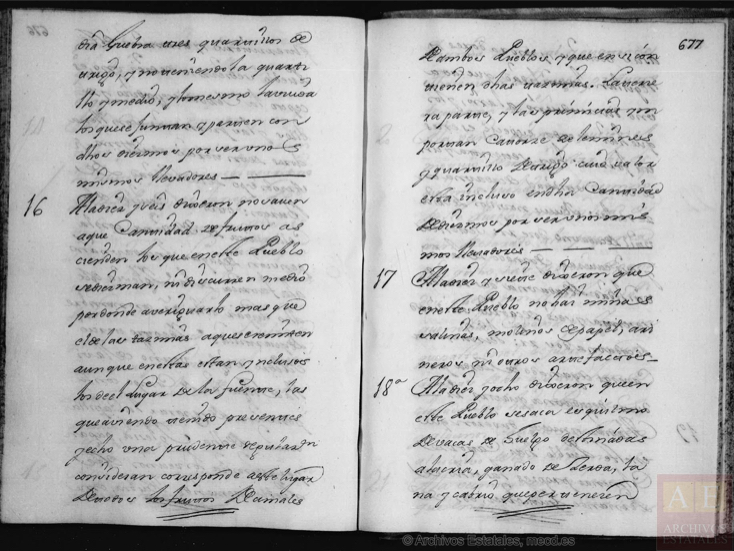 676
dia huebra tres quartillos de
trigo, y no uniendo la quarti
lla y medio, y lo mesmo la viuda
los que se juntan y parten con
dhos diezmos por ser unos
mismos llevadores
16 A la diez y seis dixeron no saven
a que Cantidad de frutos as
cienden los que en este Pueblo
se diezman, ni discurren medio
por donde averiguarlo mas que
el de las tazmias a que se remiten
aunque en ellas estan yncluso
los del Lugar de la fuente, las
que aviendo tenido presentes
y echo una prudente
consideran corresponde a este lugar
de todos los frutos Decimales
677
De ambos Pueblos y que en si con
tienen dhas tazmias, la terze
ra parte, y las primicias ym
portan Catorze zelemines
y quartillo De trigo cuio valor
esta incluso en dha Cantidad
de diezmos por ser unos mis
mos llevadores
17 A la diez y siete dixeron que
en este Pueblo no hai minas
salinas, molinos de papel, ari
neros ni otros artefactos
18a A la diez y ocho dixeron que en
este Pueblo se saca esquilmo
De vacas de huelgo destinadas
a la cria, ganado de Zerda, la
na y cabrio que pertenezen
AE
ARCHIVOS
ESTATALES
© Archivos Estatales, mecd.es